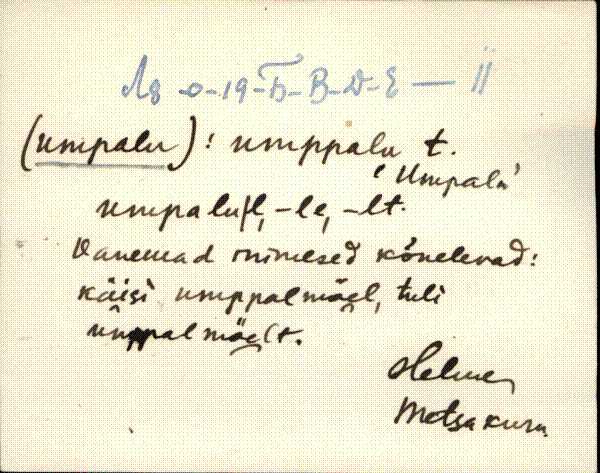 0-19-Б-В-D-Е — II
(umpalu): umppalu t.
'Umpalu'
umpalu|l, -le, -lt.
Vanemad inimesed kõnelevad:
käisi umppalmäel, tuli
umppalmäelt.
Helme
Metsakuru